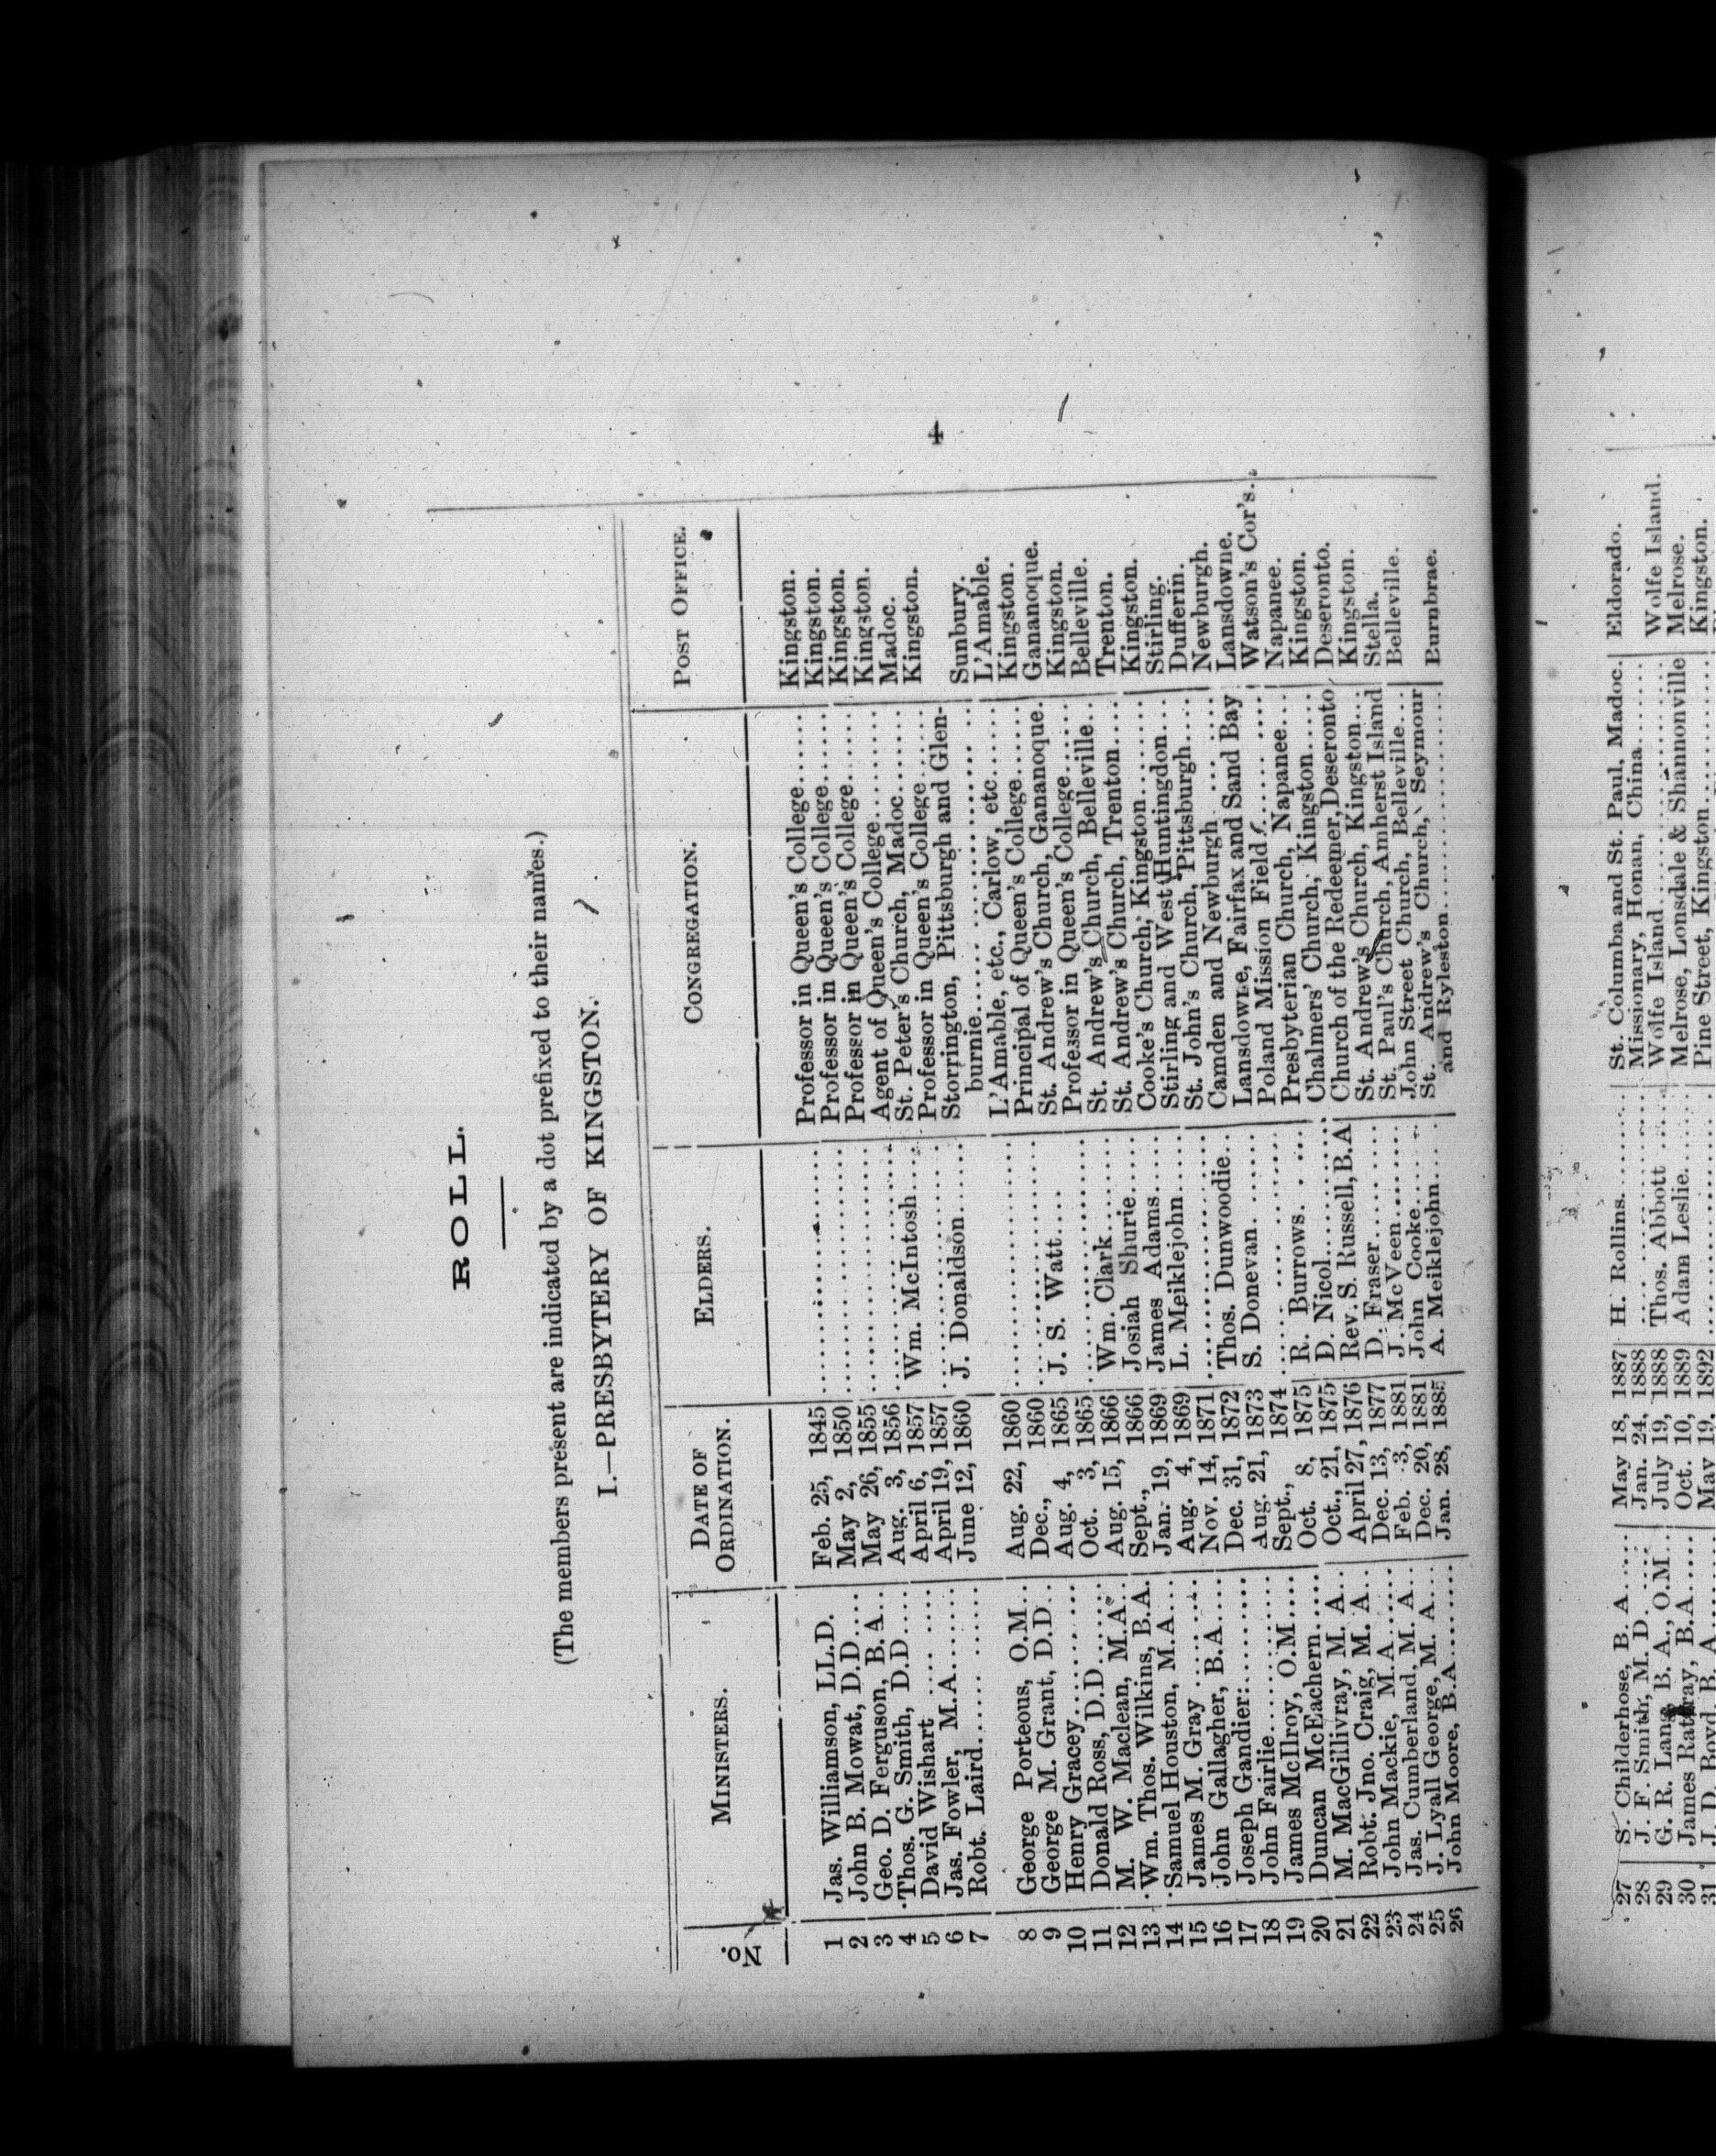 4
ROLL.
(The members present are indicated by a dot prefixed to their names.)
I.—PRESBYTERY OF KINGSTON.
No. MINISTERS. DATE OF ORDINATION. ELDERS. CONGREGATION. POST OFFICE.
1 Jas. Williamson, LL.D. Feb. 25, 1845 ........ Professor in Queen's College...... Kingston.
2 John B. Mowat, D.D.... May 2, 1850 ........ Professor in Queen's College...... Kingston.
3 Geo. D. Ferguson, B. A... May 26, 1855 ........ Professor in Queen's College...... Kingston.
4 ·Thos. G. Smith, D.D..... Aug. 3, 1856 ........ Agent of Queen's College......... Kingston.
5 David Wishart ........ April 6, 1857 Wm. McIntosh..... St. Peter's Church, Madoc....... Madoc.
6 Jas. Fowler, M.A........ April 19, 1857 ........ Professor in Queen's College..... Kingston.
7 Robt. Laird........ June 12, 1860 J. Donaldson....... Storrington, Pittsburgh and Glen-
burnie........ Sunbury.
8 George Porteous, O.M.. Aug. 22, 1860 ........ L'Amable, etc., Carlow, etc...... L'Amable.
9 George M. Grant, D.D.. Dec., 1860 ........ Principal of Queen's College...... Kingston.
10 Henry Gracey........ Aug. 4, 1865 J. S. Watt.... St. Andrew's Church, Gananoque. Gananoque.
11 Donald Ross, D.D...... Oct. 3, 1865 ........ Professor in Queen's College..... Kingston.
12 M. W. Maclean, M.A.. Aug. 15, 1866 Wm. Clark....... St. Andrew's Church, Belleville.. Belleville.
13 ·Wm. Thos. Wilkins, B.A. Sept., 1866 Josiah Shurie..... St. Andrew's Church, Trenton.... Trenton.
14 ·Samuel Houston, M.A... Jan. 19, 1869 James Adams..... Cooke's Church, Kingston....... Kingston.
15 James M. Gray ....... Aug. 4, 1869 L. Meiklejohn..... Stirling and West Huntingdon.... Stirling.
16 John Gallagher, B.A.... Nov. 14, 1871 ........ St. John's Church, Pittsburgh.... Dufferin.
17 Joseph Gandier........ Dec. 31, 1872 Thos. Dunwoodie.. Camden and Newburgh ........ Newburgh.
18 John Fairlie........ Aug. 21, 1873 S. Donevan....... Lansdowne, Fairfax and Sand Bay Lansdowne.
19 James McIlroy, O.M.... Sept., 1874 ........ Poland Mission Field........ Watson's Cor's.
20 Duncan McEachern..... Oct. 8, 1875 R. Burrows....... Presbyterian Church, Napanee... Napanee.
21 M. MacGillivray, M. A.. Oct., 21, 1875 D. Nicol........ Chalmers' Church, Kingston..... Kingston.
22 Robt. Jno. Craig, M. A.. April 27, 1876 Rev. S. Russell, B.A Church of the Redeemer, Deseronto Deseronto.
23 John Mackie, M.A..... Dec. 13, 1877 D. Fraser........ St. Andrew's Church, Kingston... Kingston.
24 Jas. Cumberland, M. A.. Feb. 3, 1881 J. McVeen....... St. Paul's Church, Amherst Island Stella.
25 J. Lyall George, M. A... Dec. 20, 1881 John Cooke....... John Street Church, Belleville... Belleville.
26 John Moore, B.A........ Jan. 28, 1885 A. Meiklejohn.... St. Andrew's Church, Seymour
and Ryleston........ Burnbrae.
27 S. Childerhose, B. A.... May 18, 1887 H. Rollins........ St. Columba and St. Paul, Madoc. Eldorado.
28 J. F. Smith, M. D. .... Jan. 24, 1888 ........ Missionary, Honan, China......
29 G. R. Lang, B. A., O.M.. July 19, 1888 Thos. Abbott ..... Wolfe Island........ Wolfe Island.
30 James Rattray, B.A..... Oct. 10, 1889 Adam Leslie...... Melrose, Lonsdale & Shannonville Melrose.
31 J. D. Boyd, B. A....... May 19, 1892 ........ Pine Street, Kingston........ Kingston.